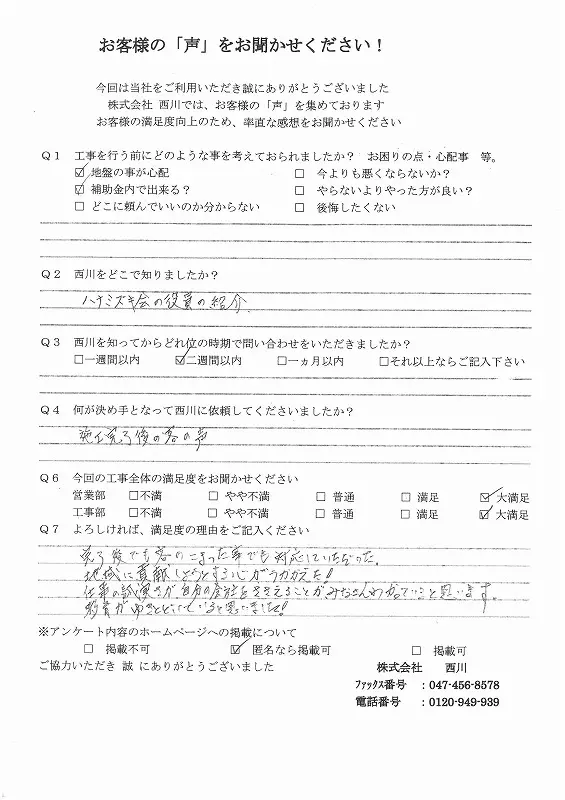 お客様の「声」をお聞かせください！
今回は当社をご利用いただき誠にありがとうございました
株式会社 西川では、お客様の「声」を集めております
お客様の満足度向上のため、率直な感想をお聞かせください
Ｑ１ 工事を行う前にどのような事を考えておられましたか？ お困りの点・心配事 等。
☑ 地盤の事が心配 □ 今よりも悪くならないか？
☑ 補助金内で出来る？ □ やらないよりやった方が良い？
□ どこに頼んでいいのか分からない □ 後悔したくない
Ｑ２ 西川をどこで知りましたか？
ハナミズキ会の役員の紹介
Ｑ３ 西川を知ってからどれ位の時期で問い合わせをいただきましたか？
□一週間以内 ☑二週間以内 □一ヵ月以内 □それ以上ならご記入下さい
Ｑ４ 何が決め手となって西川に依頼してくださいましたか？
施工完了後の客の声
Ｑ６ 今回の工事全体の満足度をお聞かせください
営業部 □不満 □ やや不満 □ 普通 □ 満足 ☑ 大満足
工事部 □不満 □ やや不満 □ 普通 □ 満足 ☑ 大満足
Ｑ７ よろしければ、満足度の理由をご記入ください
完了後でも客のこまった事でも対応していただった。
地域に貢献しようとする心がうかがえた！
仕事の誠実さが、自身の会社をささえることがみなさんわかっていると思います。
がゆきとどいていると思いました！
※アンケート内容のホームページへの掲載について
□ 掲載不可 ☑ 匿名なら掲載可 □ 掲載可
ご協力いただき 誠 にありがとうございました 株式会社 西川
ﾌｧｯｸｽ番号 ：047-456-8578
電話番号 ：0120-949-939